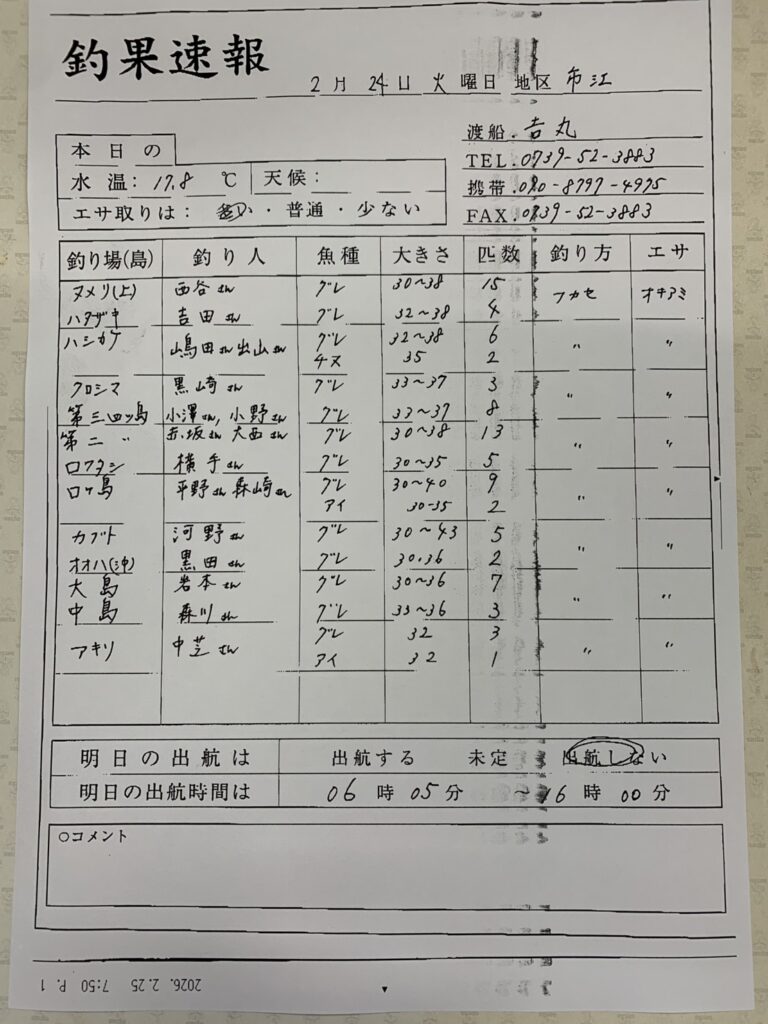 釣果速報
2月 24日 火曜日 地区 市江
渡船. 吉丸
TEL. 0739-52-3883
携帯. 090-8797-4975
FAX. 0739-52-3883
本日の
水温: 17.8 ℃ 天候:
エサ取りは: 多い・普通・少ない
釣り場(島) 釣り人 魚種 大きさ 匹数 釣り方 エサ
ヌメリ(上) 西谷さん グレ 30~38 15 フカセ オキアミ
ハタザ中 吉田さん グレ 32~38 4
ハシカケ 嶋田さん出山さん グレ 32~38 6 〃 〃
チヌ 35 2
クロシマ 黒崎さん グレ 33~37 3 〃 〃
第三四ツ島 小澤さん, 小野さん グレ 33~37 8
第二 〃 赤坂さん 大西さん グレ 30~38 13 〃 〃
ロクタン 横手さん グレ 30~35 5
ロケ島 平野さん森崎さん グレ 30~40 9 〃 〃
アイ 30-35 2
カブト 河野さん グレ 30~43 5 〃 〃
オオハ(沖) 黒田さん グレ 30.36 2
大島 岩本さん グレ 30~36 7 〃 〃
中島 森川さん グレ 33~36 3
アキリ 中芝さん グレ 32 3 〃 〃
アイ 32 1
明日の出航は 出航する 未定 出航しない
明日の出航時間は 06時05分 ~16時00分
○コメント
2026. 2.25 7:50 P. 1